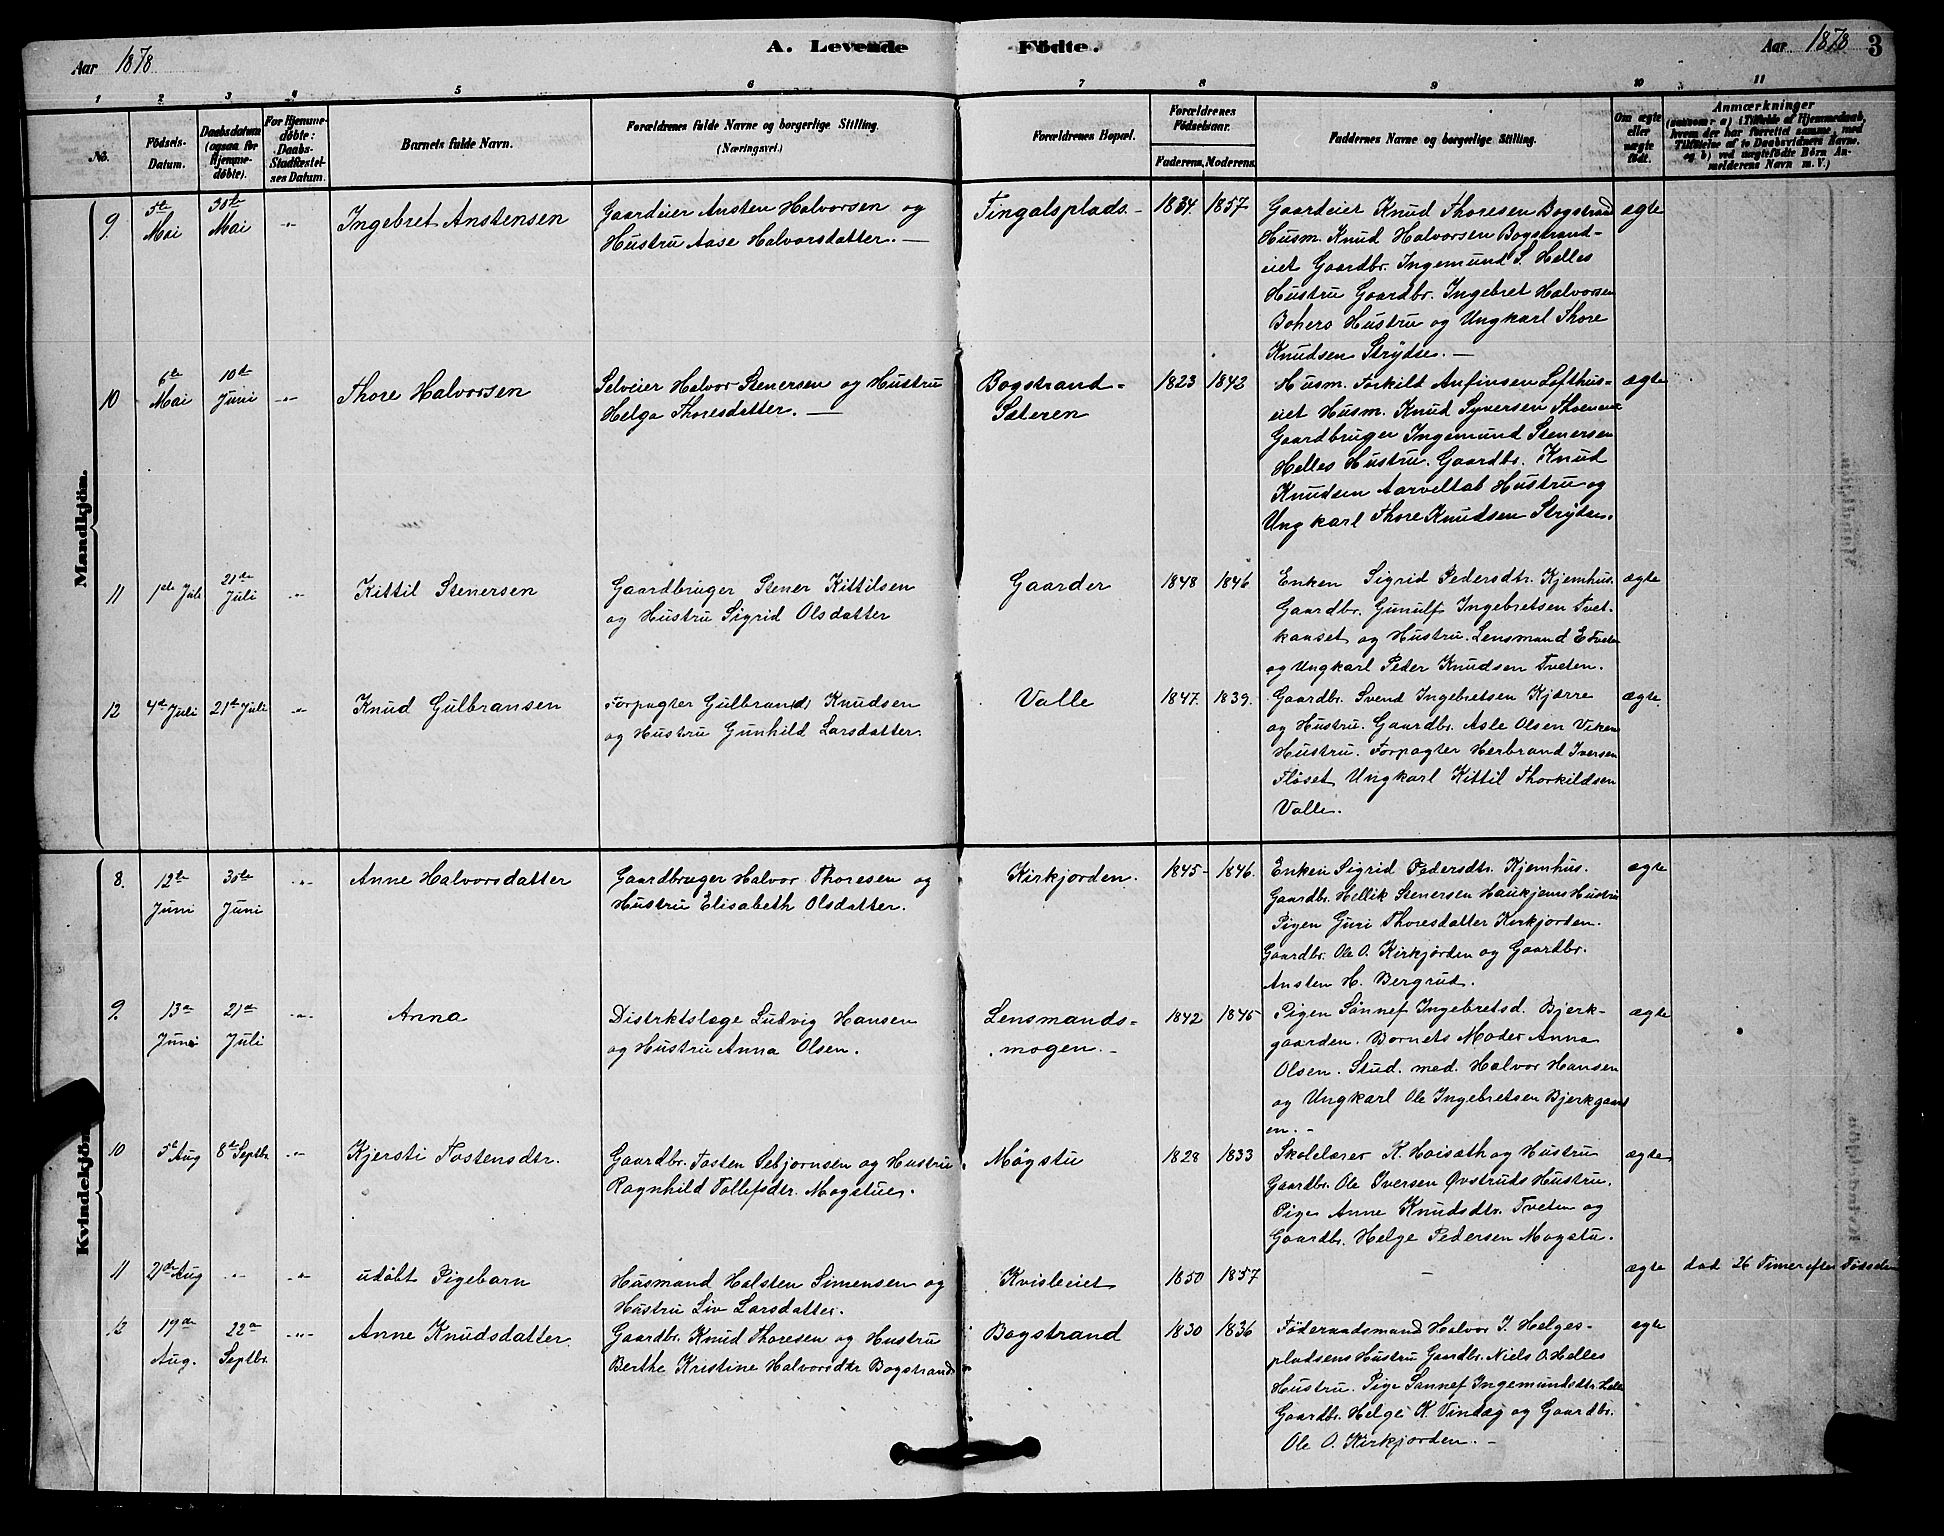 Aar 1878
A. Levende Födte.
Aar 1878 3
1 2 3 4 5 6 7 8 9 10 11
No.
Födsels-Datum.
Daabsdatum (ogsaa for Hjemmedøbte).
For Hjemmedøbte: Daabs-Stadfæstelses Datum.
Barnets fulde Navn.
Forældrenes fulde Navne og borgerlige Stilling. (Næringsvei.)
Forældrenes Bopæl.
Forældrenes Födselsaar.
Faderens. Moderens.
Faddernes Navne og borgerlige Stilling.
Om ægte eller uægte födt.
Anmærkninger
Mandkjön.
9. 5te Mai 30te Mai -"- Ingebret Anstensen
Gaardeier Ansten Halvorsen og
Hustru Aase Halvorsdatter. —
Tingalsplads. 1834. 1857
Gaardeier Knud Thoresen Bogstrand
Husm. Knud Halvorsen Bogstrand-
eiet Gaardbr. Ingemund S. Helles
Hustru Gaardbr. Ingebret Halvorsen
Bohers Hustru og Ungkarl Thore
Knudsen Strydse. —
ægte
10 6te Mai 10de Juni -"- Thore Halvorsen
Selveier Halvor Stenersen og Hustru
Helga Thoresdatter. —
Bogstrand-
Sæteren
1823 1842
Husm. Torkild Anfinsen Lofthus-
eiet Husm. Knud Syversen
Gaardbruger Ingemund Stenersen
Helles Hustru. Gaardbr. Knud
Knudsen Aarveltab Hustru og
Ungkarl Thore Knudsen Strydse.
ægte
11 1ste Juli 21de Juli -"- Kittil Stenersen
Gaardbruger Stener Kittilsen
og Hustru Sigrid Olsdatter
Gaarder 1848 1846
Enken Sigrid Pedersdtr. Kjemhus.
Gaardbr. Gunulf Ingebretsen Tvet-
kaaset og Hustru. Lensmand E Tveten
og Ungkarl Peder Knudsen Tveten.
ægte
12 4de Juli 21de Juli -"- Knud Gulbransen
Forpagter Gulbrand Knudsen
og Hustru Gunhild Larsdatter.
Valle 1847. 1839.
Gaardbr. Svend Ingebretsen Kjærre
og Hustru. Gaardbr. Asle Olsen Viken
Hustru. Forpagter Herbrand Iversen
Fløset Ungkarl Kittil Thorkildsen
Valle.
ægte
Kvindekjön
8. 12te Juni 30te Juni -"- Anne Halvorsdatter
Gaardbruger Halvor Thoresen og
Hustru Elisabeth Olsdatter.
Kirkjorden. 1845- 1846.
Enken Sigrid Pedersdtr. Kjemhus.
Gaardbr. Hellik Stenersen Haukjems Hustru
Pigen Guri Thoresdatter Kirkjorden.
Gaardbr. Ole O. Kirkjorden og Gaardbr.
Ansten H. Bergrud.
ægte
9. 13de Juni 21de Juli -"- Anna
Distrktslæge Ludvig Hansen
og Hustru Anna Olsen.
Lensmands-
mogen.-
1842 1845
Pigen Sønnef Ingebretsd. Bjerk-
gaarden. Barnets Moder Anna
Olsen. Stud. med. Halvor Hansen
og Ungkarl Ole Ingebretsen Bjerkgaard
en. -
ægte
10 5te Aug 8de Septbr. -"- Kjersti Tostensdtr.
Gaardbr. Tosten Sebjornsen og Hustru
Ragnhild Tollefsdtr. Mogstue.
Møgstu 1828 1833
Skolelærer K. Hoisath og Hustru
Gaardbr. Ole Iversen Øvstruds Hustru.
Pige Anne Knudsdtr. Tveten og
Gaardbr. Helge Pedersen Mogstu.
ægte
11 21de Aug -"- -"- udøbt Pigebarn
Husmand Halsten Simensen og
Hustru Liv Larsdatter.
Kvisleeiet 1850 1857 —
ægte
død 26 Timer efter Fødselen
12 19de Aug. 22de Septbr. -"- Anne Knudsdatter
Gaardbr. Knud Thoresen og Hustru
Berthe Kristine Halvorsdtr Bogstrand
Bogstrand 1830 1836
Føderaadsmand Halvor J. Helges-
pladsens Hustru Gaardbr. Niels O. Helles
Hustru. Pige Sønnef Ingemundsdtr. Helle
Gaardbr. Helge K. Vindæg og Gaardbr.
Ole O. Kirkjorden. -
ægte